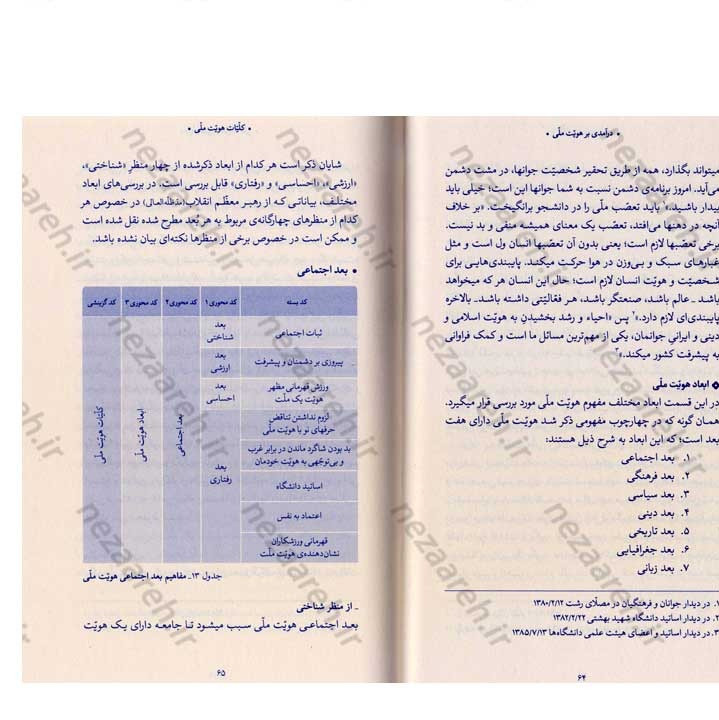 درآمدی بر هویّت ملّی •
میتواند بگذارد، همه از طریق تحقیر شخصیّت جوانها، در مشت دشمن
می‌آید. امروز برنامه‌ی دشمن نسبت به شما جوانها این است؛ خیلی باید
بیدار باشید.» باید تعصّب ملّی را در دانشجو برانگیخت. «بر خلاف
آنچه در ذهنها می‌افتد، تعصّب یک معنای همیشه منفی و بد نیست.
برخی تعصّبها لازم است؛ یعنی بدون آن تعصّبها انسان ول است و مثل
غبارهای سبک و بی‌وزن در هوا حرکت میکند. پایبندی‌هایی برای
شخصیّت و هویّت انسان لازم است؛ حال این انسان هر که میخواهد
باشد ـ عالم باشد، صنعتگر باشد، هر فعّالیّتی داشته باشد ـ بالاخره
پایبندی‌ای لازم دارد.»۲ پس «احیاء و رشد بخشیدن به هویّت اسلامی و
دینی و ایرانیِ جوانمان، یکی از مهم‌ترین مسائل ما است و کمک فراوانی
به پیشرفت کشور میکند.»۳
ابعاد هویّت ملّی
در این قسمت ابعاد مختلف مفهوم هویّت ملّی مورد بررسی قرار میگیرد.
همان گونه که در چهارچوب مفهومی ذکر شد هویّت ملّی دارای هفت
بعد است؛ که این ابعاد به شرح ذیل هستند:
۱. بعد اجتماعی
۲. بعد فرهنگی
۳. بعد سیاسی
۴. بعد دینی
۵. بعد تاریخی
۶. بعد جغرافیایی
۷. بعد زبانی
۱. در دیدار جوانان و فرهنگیان در مصلّای رشت ۱۳۸۰/۲/۱۲
۲. در دیدار اساتید دانشگاه شهید بهشتی ۱۳۸۲/۲/۲۲
۳. در دیدار اساتید و اعضای هیئت علمی دانشگاه‌ها ۱۳۸۵/۷/۱۳
۶۴
• کلّیّات هویّت ملّی •
شایان ذکر است هر کدام از ابعاد ذکرشده از چهار منظرِ «شناختی»،
«ارزشی»، «احساسی» و «رفتاری» قابل بررسی است. در بررسی‌های ابعاد
مختلف، بیاناتی که از رهبر معظّم انقلاب(مدّظلّه‌العالی) در خصوص هر
کدام از منظرهای چهارگانه‌ی مربوط به هر بُعد مطرح شده نقل شده است
و ممکن است در خصوص برخی از منظرها نکته‌ای بیان نشده باشد.
• بعد اجتماعی
کد بسته کد محوری۱ کد محوری۲ کد محوری۳ کد گزینشی
ثبات اجتماعی بعد شناختی
پیروزی بر دشمنان و پیشرفت بعد ارزشی
ورزش قهرمانی مظهر
هویّت یک ملّت
بعد احساسی
لزوم نداشتن تناقض
حرفهای نو با هویّت ملّی
بد بودن شاگرد ماندن در برابر غرب
و بی‌توجّهی به هویّت خودمان
اساتید دانشگاه
اعتماد به نفس
قهرمانی ورزشکاران
نشان‌دهنده‌ی هویّت ملّت
بعد رفتاری
بعد اجتماعی
ابعاد هویّت ملّی
کلّیّات هویّت ملّی
جدول ۱۳ـ مفاهیم بعد اجتماعی هویّت ملّی
ـ از منظر شناختی
بعد اجتماعی هویّت ملّی سبب میشود تا جامعه دارای یک هویّت
۶۵
nezaareh.ir
nezaareh.ir
nezaareh.ir
nezaareh.ir
nezaareh.ir
nezaareh.ir
nezaareh.ir
nezaareh.ir